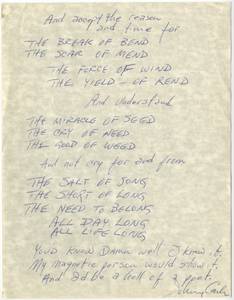 And accept the reason
and time for
THE BREAK OF BEND
THE SCAR OF MEND
THE FORCE OF WIND
THE YIELD - OF REND
And Understand
THE MIRACLE OF SEED
THE CRY OF NEED
THE GOOD OF WEED
And not cry for and from
THE SALT OF SONG
THE SHORT OF LONG
THE NEED TO BELONG
ALL DAY LONG
ALL LIFE LONG
You'd know Damn well I knew it.
My magnetic person would show it.
And I'd be a hell of a poet.
Johnny Cash